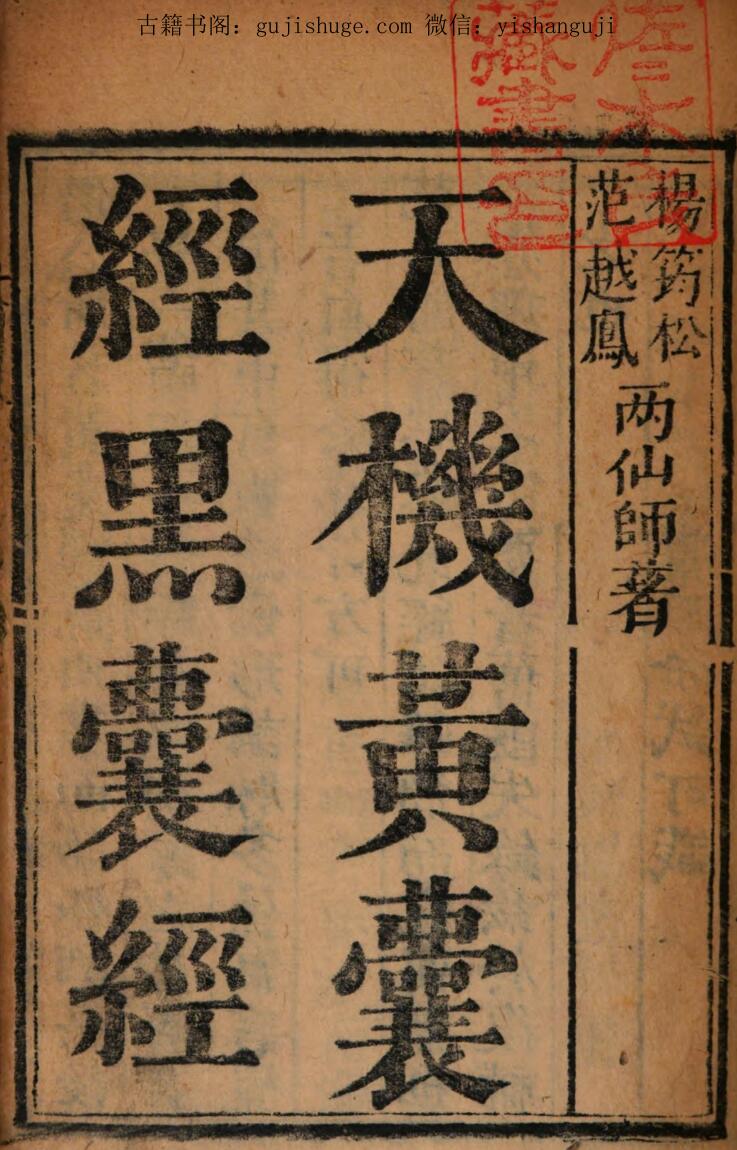 古籍书阁：gujishuge.com 微信：yishanguji
楊筠松
范越鳳
两仙師著
天機黃囊
經黑囊經